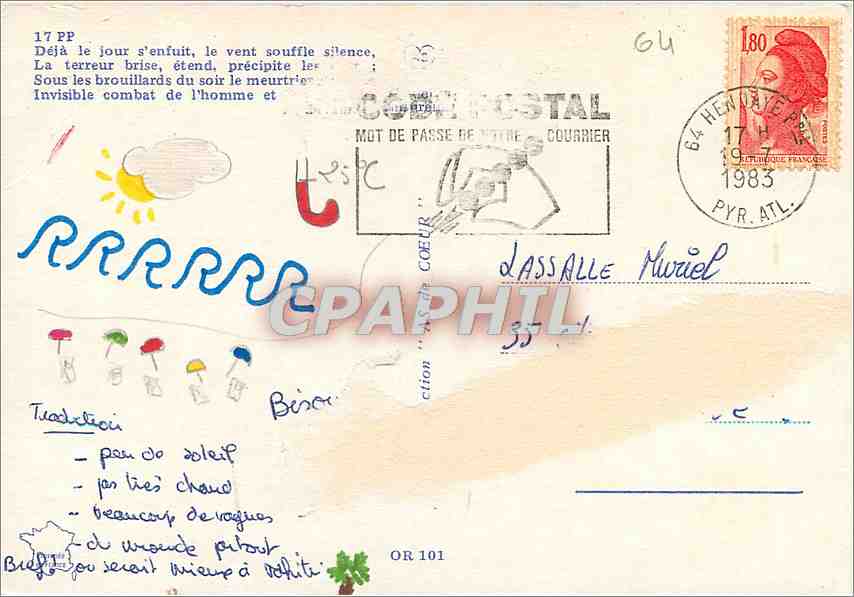 17 PP
Déjà le jour s'enfuit, le vent souffle silence,
La terreur brise, étend, précipite les
Sous les brouillards du soir le meurtrier
Invisible combat de l'homme et
64
1,80
POSTES
RÉPUBLIQUE FRANÇAISE
64 HENDAYE PPAL
17 H
19-7
1983
PYR. ATL.
CODE POSTAL
MOT DE PASSE DE VOTRE COURRIER
+25°C
RRRRRR
ction "AS de COEUR"
LASSALLE Muriel
CPAPHIL
35
Bisou
Traduction
- peu de soleil
- pas très chaud
- beaucoup de vagues
- du monde partout
Bref! on serait mieux à Tahiti
OR 101